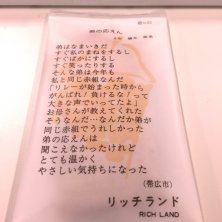 弟の応えん
弟はなまいきだ
すぐ私のまねをするし
すぐばかにするし
すぐ笑ったりする
そんな弟は今年も
私と同じ赤組なんだ
「リレーが始まった時から
がんばれ！負けるな！って
大きな声でいってたよ」
お母さんが教えてくれた
そうなんだ…なんだか弟が
同じ赤組でうれしかった
弟の応えんは
聞こえなかったけれど
とても温かく
やさしい気持ちになった
(帯広市)
リッチランド
RICH LAND